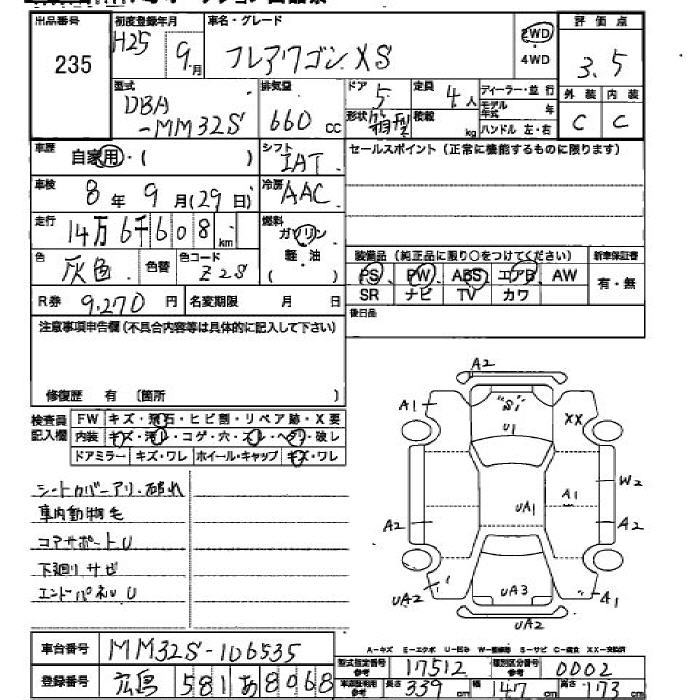 出品番号 初度登録年月 車名・グレード 評価点
235 H25 9月 フレアワゴン XS 2WD・4WD 3.5
型式 排気量 ドア 5 定員 4人 ディーラー・並行 外装 内装
DBA-MM32S 660cc 形状 箱型 積載 kg モデル年式 年 ハンドル 左・右 C C
車歴 自家用・( ) シフト IAT セールスポイント(正常に機能するものに限ります)
車検 8年9月(29日) 冷房 AAC
走行 14万6千608km 燃料 ガソリン
色 灰色 色替 色コード Z2S 軽・油 ( )
装備品(純正品に限り○をつけてください) 新車保証書
PS PW ABS エアB AW 有・無
SR ナビ TV カワ
R券 9.270円 名変期限 月 日
後日品
注意事項申告欄(不具合内容等は具体的に記入して下さい)
修復歴 有 〔箇所 〕
検査員記入欄 FW キズ・飛石・ヒビ割・リペア跡・X要
内装 キズ・汚レ・コゲ・穴・スレ・ヘタリ・破レ
ドアミラー キズ・ワレ ホイール・キャップ キズ・ワレ
シートカバーアリ・破れ
車内動物毛
コアサポートU
下廻りサビ
エンドパネルU
A2
A1 "S" XX
U1
W2
A1
UA1
A2 A2
UA2 UA3 A1
UA2
A-キズ E-エクボ U-凹み W-補修跡 S-サビ C-腐食 XX-交換済
車台番号 MM32S-106535
型式指定番号 参考 17512 類別区分番号 参考 0002
登録番号 広島 581 あ 8068
車両証明用 参考 長さ 339cm 幅 147cm 高さ 173cm